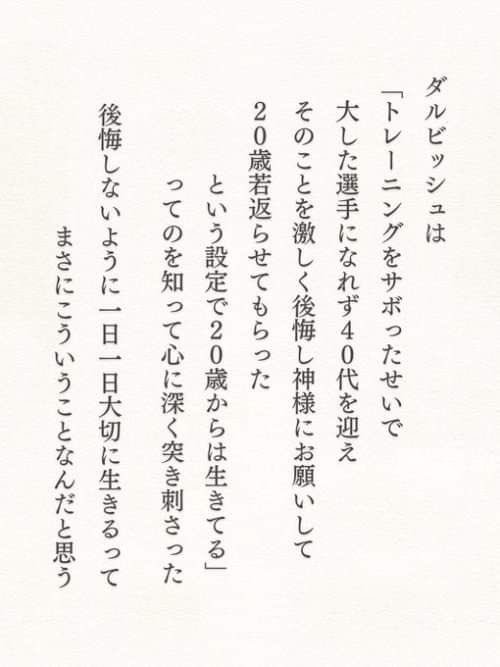 ダルビッシュは
「トレーニングをサボったせいで
大した選手になれず40代を迎え
そのことを激しく後悔し神様にお願いして
20歳若返らせてもらった
という設定で20歳からは生きてる」
ってのを知って心に深く突き刺さった
後悔しないように一日一日大切に生きるって
まさにこういうことなんだと思う